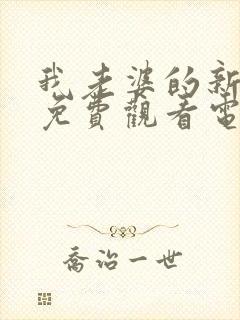 我老婆的新
免費觀看電
喬治一世